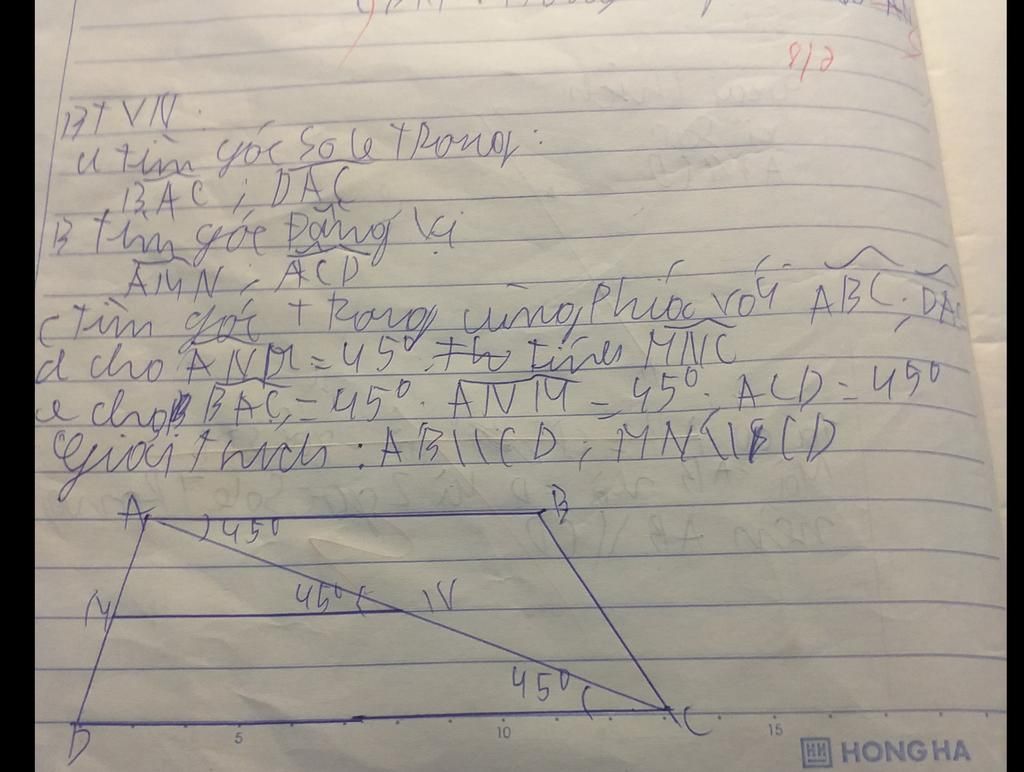 BTVN.
a tìm góc So le trong:
BAC ; DAC
B tìm góc Đồng vị
AMN ; ACD
c tìm góc trong cùng Phía với ABC, DAC
d cho ANM = 45°. tính MNC
e cho BAC = 45°. ANM = 45°; ACD = 45°
Giải thích : AB//CD ; MN//CD
A B
45°
M 45° N
45°
D C
5 10 15
HH HONG HA